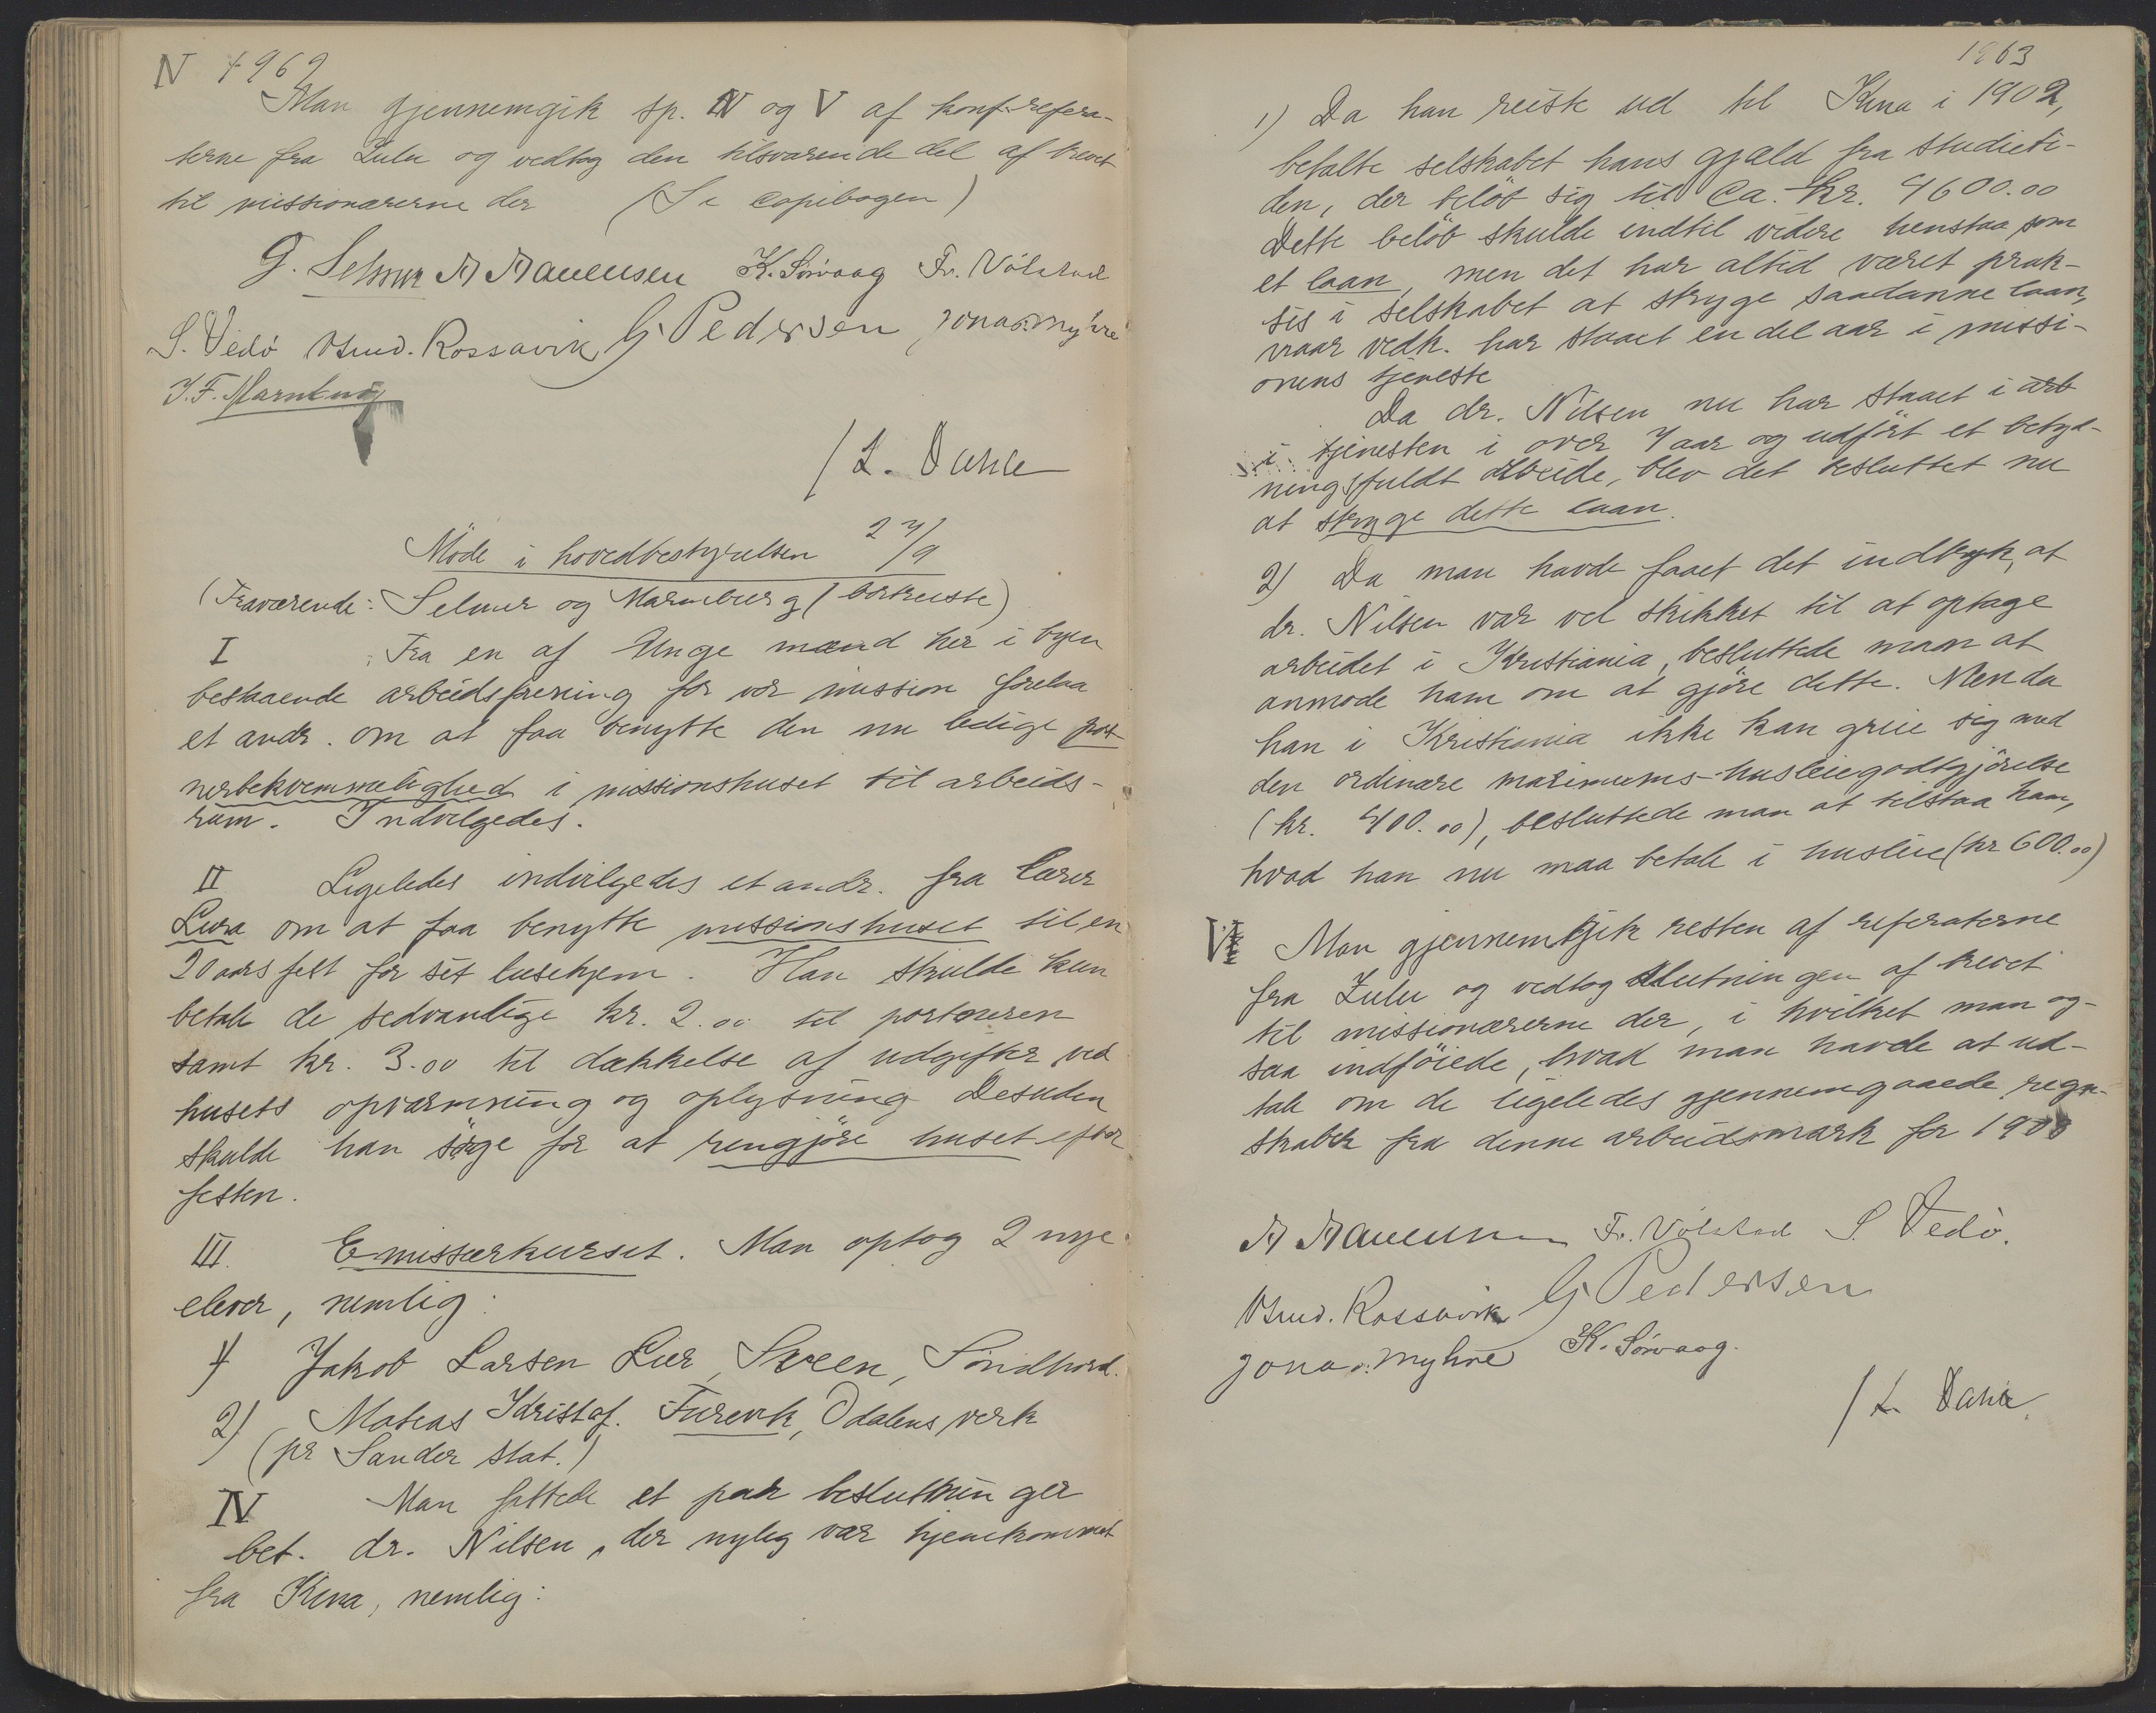 N 1962
Man gjennemgik sp. IV og V af konf.refera-
terne fra Zulu og vedtog den tilsvarende del af brevet
til missionærerne der (Se copibogen)
G. Selmer K. Sörvaag Fr. Völstad
S. Vedö Gud. Rossavik G Pedersen Jonas Myhre
J. F. Marnburg
/ L. Dahle
Möde i hovedbestyrelsen 27/9
(Fraværende: Selmer og Marnburg (bortreiste)
I Fra en af Unge mænd her i byen
bestaaende arbeidsforening for vor mission forelaa
et andr. om at faa benytte den nu ledige port-
nerbekvemmelighed i missionshuset til arbeids-
rum. Indvilgedes.
II Ligeledes indvilgedes et andr. fra lærer
Lura om at faa benytte missionshuset til en
20 aars fest for sit lusehjem. Han skulde kun
betale de sedvanlige kr. 2.00 til portneren
samt kr. 3.00 til dækkelse af udgifter ved
husets opvarmning og oplysning Desuden
skulde han sörge for at rengjöre huset efter
festen.
III. Emissærkurset. Man optog 2 nye
elever, nemlig:
1) Jakob Larsen Lier, Sveen, Söndhord.
2) Mateas Kristof. Furevik, Odalens verk
(pr Sander stat.)
IV Man fattede et par beslutninger
bet. dr. Nilsen, der nylig var hjemkommet
fra Kina, nemlig:
1963
1) Da han reiste ud til Kina i 1902,
betalte selskabet hans gjæld fra studieti-
den, der belöb sig til Ca. kr. 4600.00
Dette belöb skulde indtil videre henstaa som
et laan, men det har altid været prak-
sis i selskabet at stryge saadanne laan,
naar vedk. har staaet en del aar i missi-
onens tjeneste
Da dr. Nilsen nu har staaet i arb
i tjenesten i over 7 aar og udfört et betyd-
ningsfuldt arbeide, blev det besluttet nu
at stryge dette laan.
2) Da man havde faaet det indtryk, at
dr. Nilsen var vel skikket til at optage
arbeidet i Kristiania, besluttede man at
anmode ham om at gjöre dette. Men da
han i Kristiania ikke kan greie sig med
den ordinære maximums-husleiegodtgjörelse
(kr. 400.00), besluttede man at tilstaa ham,
hvad han nu maa betale i husleie (kr 600.00)
V Man gjennemgik resten af referaterne
fra Zulu og vedtog slutningen af brevet
til missionærerne der, i hvilket man og-
saa indföiede, hvad man havde at ud-
tale om de ligeledes gjennemgaaede regn-
skaber fra denne arbeidsmark for 190
Fr. Völstad S. Vedö.
Gud. Rossavik G Pedersen
Jonas Myhre K. Sörvaag.
/ L. Dahle